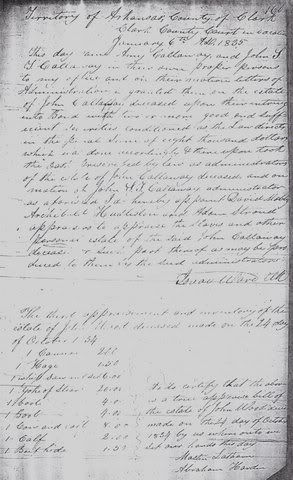 Territory of Arkansas, County of Clark
Clark County Court in vacation
January 6th AD 1835
This day came Amy Callaway, and John S
T Callaway in their own proper persons
to my office and on their motion letters of
Administration is granted them on the estate
of John Callaway deceased upon their entering
into Bond with two or more good and suffi-
cient securities conditioned as the Law directs
in the penal sum of eight thousand dollars
which was done accordingly & thereupon took
the oath prescribed by law as administrators
of the estate of John Callaway deceased and on
motion of John S T Callaway administrator
as aforesaid I do hereby appoint David
Archibald Huddleston and Adam Stroud
appraisers to appraise the slaves and other
personal estate of the said John Callaway
deceased or such part thereof as may be pro
duced to them by the said administrators
Isaac Ward Clk
The third appraisement and inventory of the
estate of John Wood deceased made on the 24 day
of October 1834
1 2.00
1 1.50
6.00
1 Yoke of Steers 20.00
1 4.00
1 4.00
1 Cow and calf 8.00
1 Calf 2.00
1 1.50
We do certify that the above
is a true appraise bill of
the estate of John Wood
made on the 24 day of October
1834 by us
Set our hands this day
Martin
Abraham Hardin